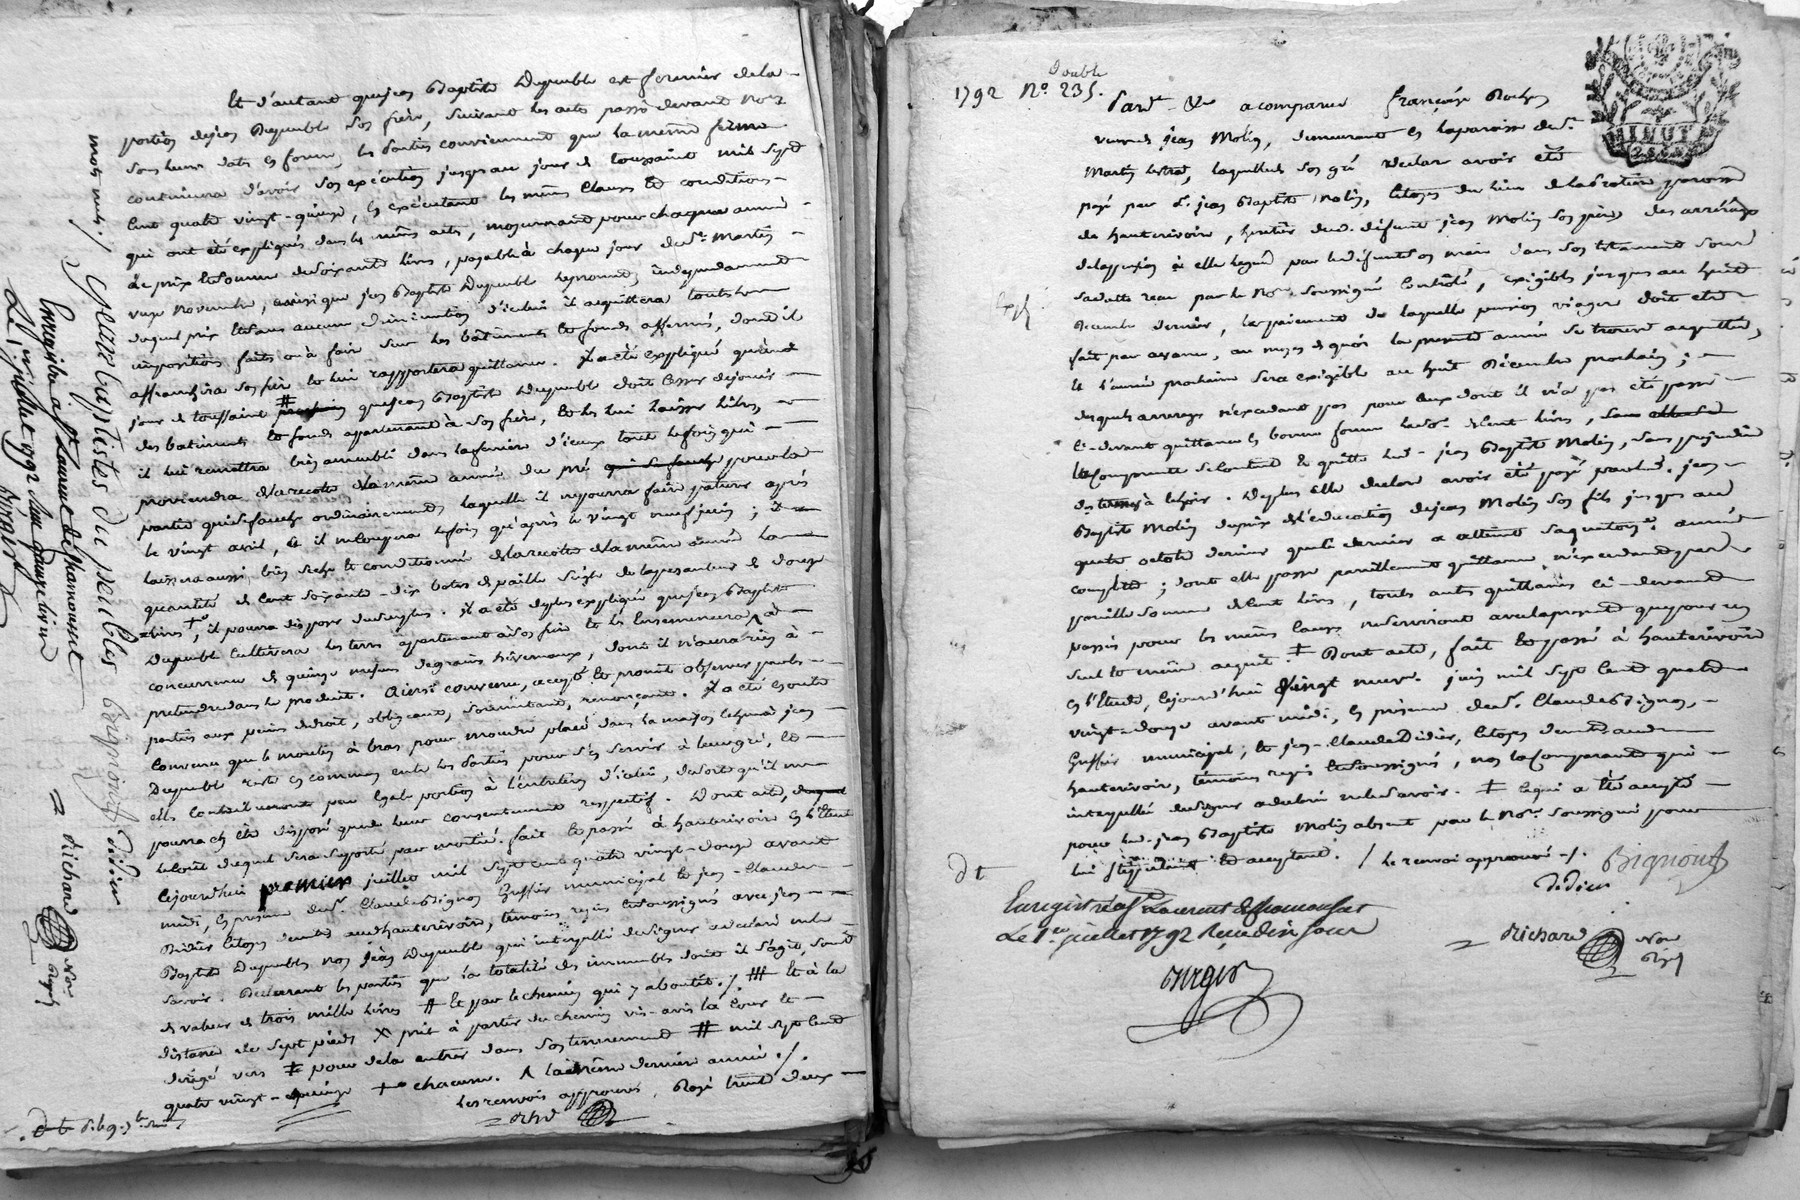 Et d'autant que jean Baptiste Dupeuble est fermier de la
portion de jean Dupeuble son frère, suivant les acte passé devant No.re
son heur datte en forme, les parties conviennent que la même ferme
continuera d'avoir son exécution jusqu'au jour de toussaint mil sept
Cent quatre vingt-quinze, en exécutant les mêmes clauses et conditions
qui ont été expliqués dans les mêmes actes, moyennant pour chaque année
le prix et somme de soixante livres, payable à chaque jour de St. Martin
onze Novembre, ainsi que jean Baptiste Dupeuble le promet, indépendamment
duquel prix et sans aucune diminution d'icelui il acquittera toutes les
impositions faites ou à faire sur les bâtiments et fonds affermés, dont il
affranchira son frère et lui rapportera quittance. Il a été expliqué qu'au
jour de toussaint # que jean Baptiste Dupeuble doit cesser de jouir
des batiments et fonds appartenant à son frère, et les lui laisser libres,
il lui remettra bien dans la fenière d'iceux tout le foin qui
proviendra de la recolte de la même année du pré pour la
partie qui se fauche ordinairement, laquelle il ne pourra faire paturer après
le vingt avril, et il ne coupera le foin qu'après le vingt neuf juin ; il
laissera aussi bien seche et conditionné de la recolte de la même année la
quantité de cent soixante-dix bottes de paille seigle de la pesanteur de douze
livres, il pourra disposer du surplus. Il a été de plus expliqué que jean Baptiste
Dupeuble cultivera les terres appartenant à son frère et les ensemencera
concurrence de quinze mesures de grains hivernaux, dont il n'aura rien à
prétendre dans le produit. Ainsi convenu, accepté et promis observer par les
parties aux peines de droit, obligeant, soumettant, renonçant. Il a été ensuite
convenu que le moulin à bras pour moudre placé dans la maison le jean
Dupeuble reste en commun entre les parties pour s'en servir à leur gré, et
elles contribueront par égale portion à l'entretien d'icelui, de sorte qu'il ne
pourra en être disposé que de leur consentement respectif. Dont acte,
le coût duquel sera supporté par moitié. fait et passé à hauterivoire en l'Etude
cejourd'hui premier juillet mil sept cent quatre vingt-douze avant
midi, en présence de Sr. Claude Bignon Greffier municipal et jean-Claude
Didier Citoyen dudit hauterivoire, témoins requis et soussignés avec jean
Baptiste Dupeuble, non jean Dupeuble qui interpellé de signer a déclaré ne le
savoir. Declarant les parties que la totalité des immeubles dont il s'agit, sont
de valeur de trois mille livres # et par le chemin qui y aboutit ./. ### et à la
distance de sept pieds X prit à partir du chemin vis-à-vis la cour et
dirigé vers ‡ pour de la entrer dans son tenement # mil sept cent
quatre vingt-quinze + chacune. A la même dernière année ./.
les renvois approuvés, Rayé trente deux
mots nuls ./. Jean Baptistes du peubles Bignond Didier
Enregistré a St Laurent de Chamousset
Le 1er juillet 1792
Richard Nore Royal
1792 No. 235.
double
Pardt. &c a comparu françoise Rochon
veuve de jean Molin, demeurant en la paroisse de St.
Martin lestrat, laquelle de son gré déclare avoir été
payé par Sr. jean Baptiste Molin, Citoyen du lieu de paroisse
de hauterivoire, héritier de défunt jean Molin son père des arrérages
de la pension à elle leguée par le défunt son mari dans son testament sous
sa datte reçu par le Nore. soussigné Controlé, exigibles jusques au huit
Decembre dernier, le paiement de laquelle pension viagere doit etre
fait par avance, au moyen de quoi la presente année se trouve acquittée,
et l'année prochaine sera exigible au huit Décembre prochain ;
desquels arrerages n'excedant pas pour ceux dont il n'a pas été passé
ci-devant quittance en bonne forme la de cent livres,
la Comparante se contente & quitte led. jean Baptiste Molin, sans prejudice
des termes à echoir. De plus elle declare avoir été payé par led. jean
Baptiste Molin du prix de l'éducation de jean Molin son fils jusques au
quatre octobre dernier que ce dernier a atteint sa quatorze. année
complette ; dont elle passe pareillement quittance n'excedant pas
pareille somme de Cent livres, toutes autres quittances ci-devant
passées pour les mêmes causes ne serviront avec la présente que pour un
seul et même acquit. ‡ Dont acte, fait et passé à hauterivoire
en l'Etude, cejourd'hui vingt neuve. juin mil sept cent quatre
vingt-douze avant midi, en présence de Sr. Claude Bignon,
Greffier municipal, et jean-Claude Didier, Citoyen dud.
hauterivoire, témoins requis et soussignés, non la Comparante qui
interpellée de signer a declaré ne le savoir. ‡ ce qui a été accepté
pour led. jean Baptiste Molin absent par le Nore. soussigné pour
lui stipulant et acceptant. / le renvoi approuvé ./. Bignond
Didier
Enregistré a St Laurent de Chamousset
Le 1er juillet 1792 Reçu dix sous
Richard Nore Royal